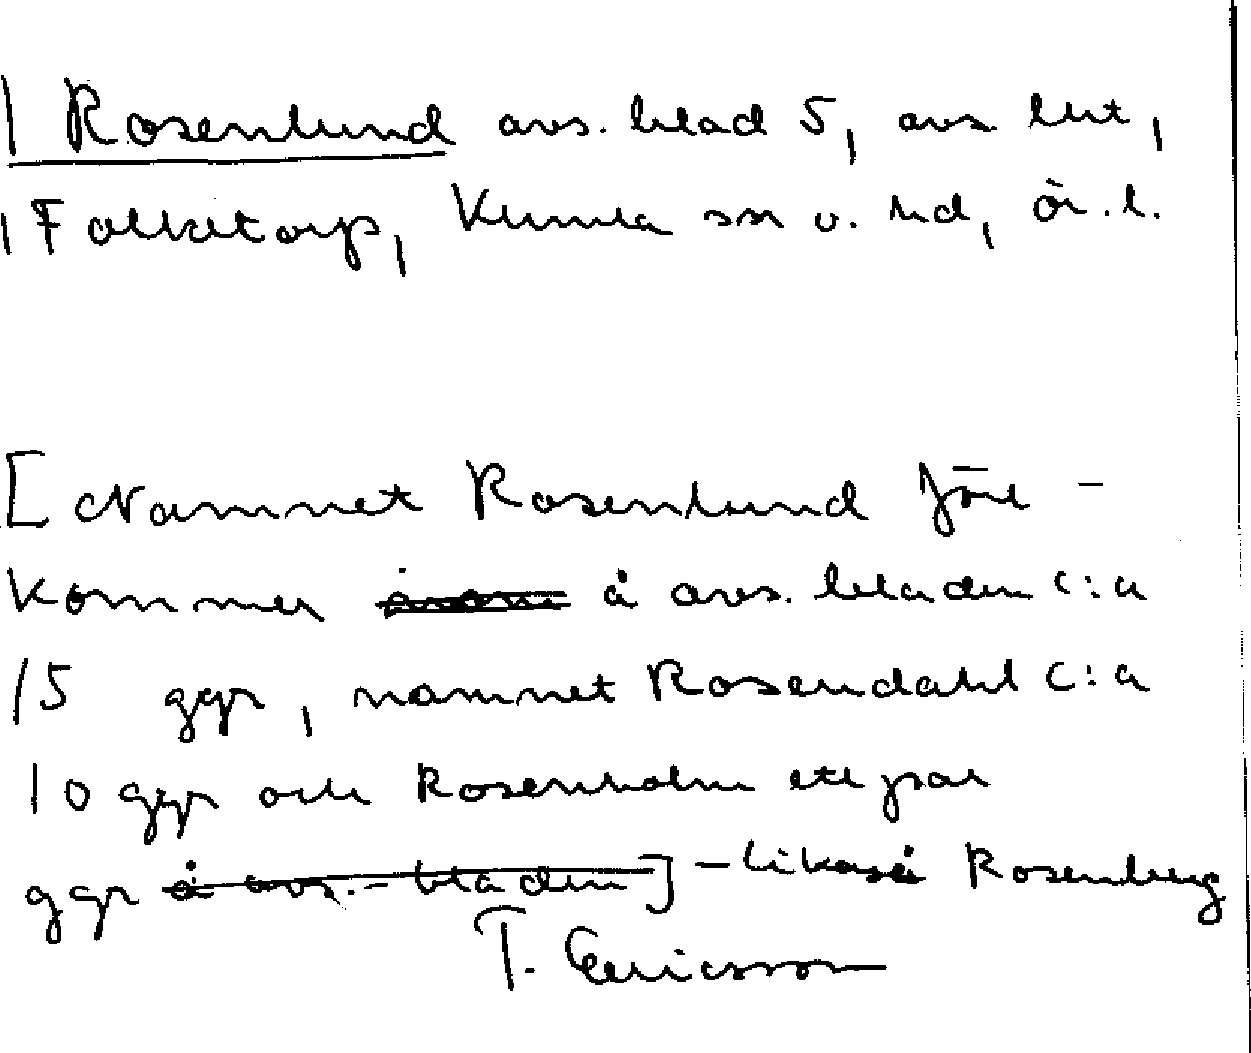 Rosenlund avs. blad 5, avs lht,
Falketorp, Kumla sn o. hd, ör. l.
[Namnet Rosenlund före-
kommer å avs. bladen c:a
15 ggr, namnet Rosendahl c:a
10 ggr och Rosenholm ett par
ggr å avs.-bladen] - likaså Rosenberg
T. Ericsson